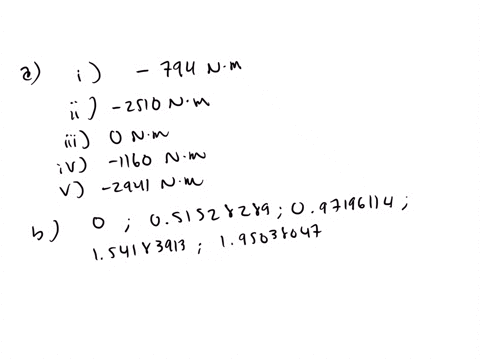 a) i) - 794 N·m
ii) -2510 N·m
iii) 0 N·m
iv) -1160 N·m
v) -2941 N·m
b) 0 ; 0.51528289 ; 0.97196114 ;
1.54183913 ; 1.95038047